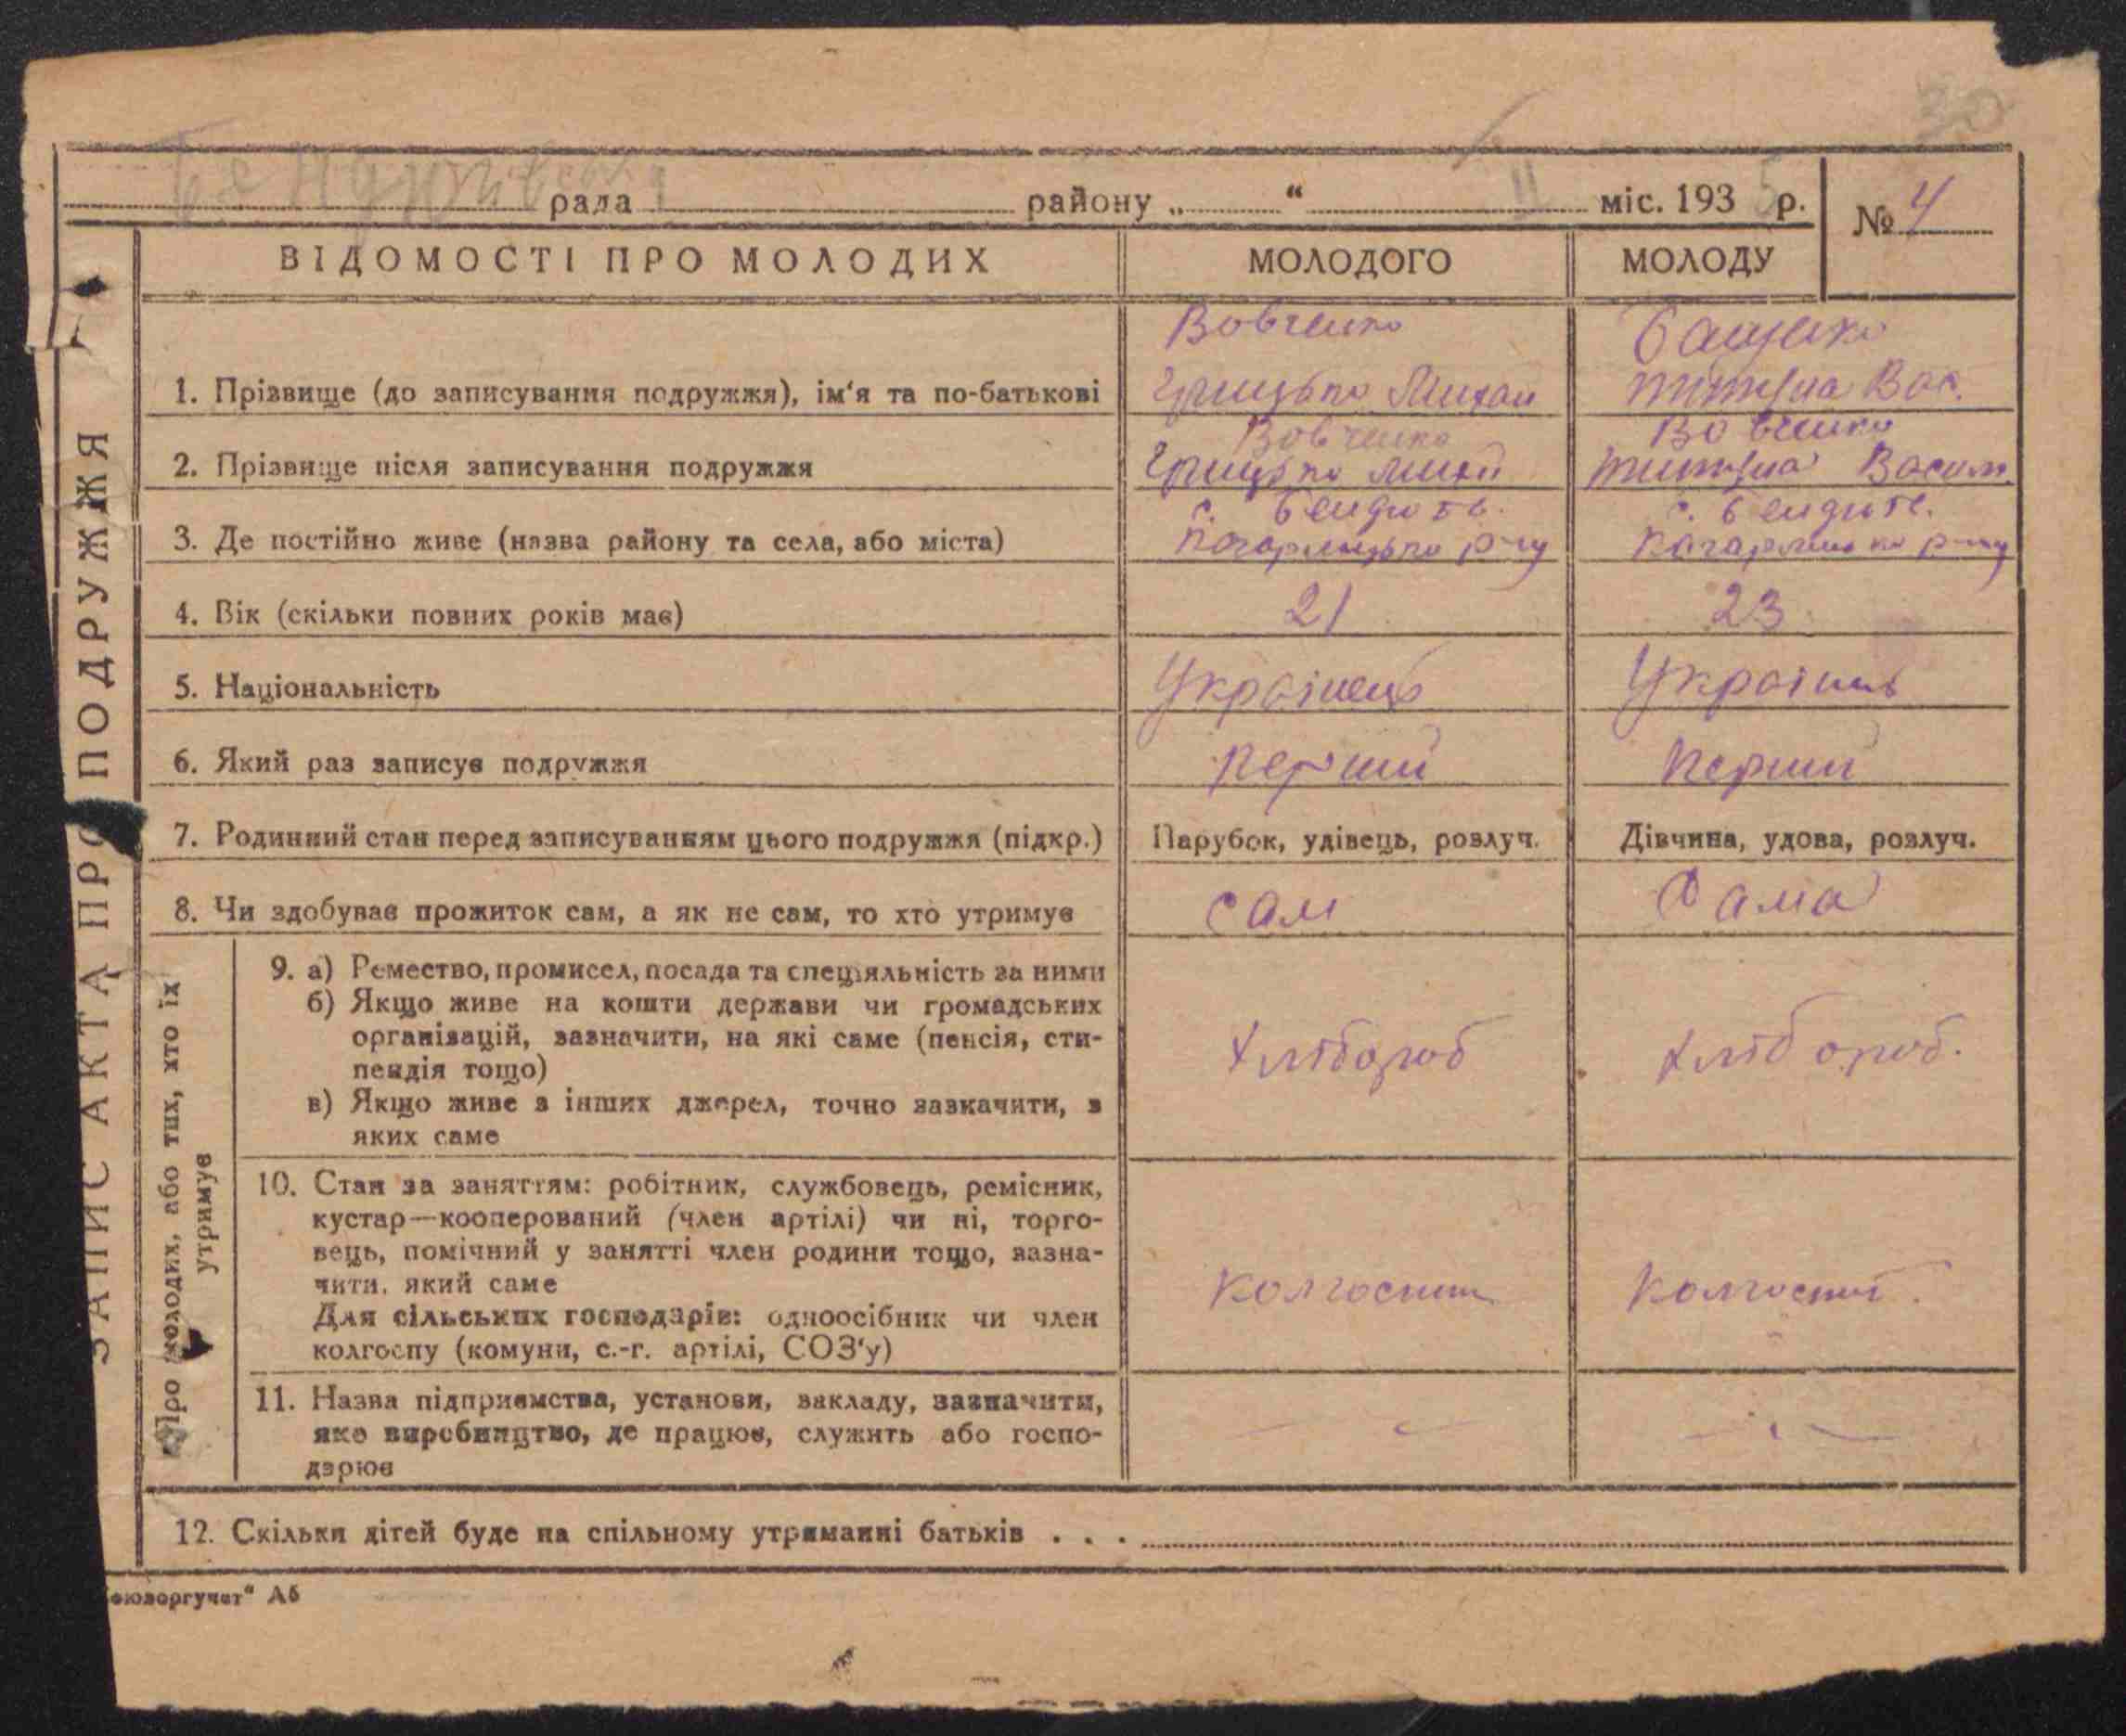 30
рада району „ “ II міс. 193 5 р.
№ 4
ЗАПИС АКТА ПРО ПОДРУЖЖЯ
ВІДОМОСТІ ПРО МОЛОДИХ МОЛОДОГО МОЛОДУ
Вовченко
1. Прізвище (до записування подружжя), ім‘я та по-батькові Грицько Михай Вас.
Вовченко Вовченко
2. Прізвище після записування подружжя Грицько Васил.
3. Де постійно живе (назва району та села, або міста)
4. Вік (скільки повних років має) 21 23
5. Національність Українець
6. Який раз записує подружжя перший перший
7. Родинний стан перед записуванням цього подружжя (підкр.) Парубок, удівець, розлуч. Дівчина, удова, розлуч.
8. Чи здобуває прожиток сам, а як не сам, то хто утримує сам Сама
Про молодих, або тих, хто їх
утримує
9. а) Ремество, промисел, посада та спеціяльність за ними
б) Якщо живе на кошти держави чи громадських
організацій, зазначити, на які саме (пенсія, сти-
пендія тощо)
в) Якщо живе з інших джерел, точно зазначити, з
яких саме
хлібороб хлібороб.
10. Стан за заняттям: робітник, службовець, ремісник,
кустар—кооперований (член артілі) чи ні, торго-
вець, помічний у занятті член родини тощо, зазна-
чити, який саме
Для сільських господарів: одноосібник чи член
колгоспу (комуни, с.-г. артілі, СОЗ‘у)
11. Назва підприємства, установи, закладу, зазначити,
яке виробництво, де працює, служить або госпо-
дарює
12. Скільки дітей буде на спільному утриманні батьків . . .
“ А6